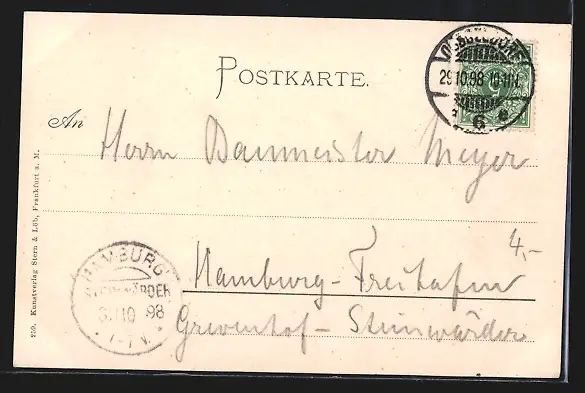 POSTKARTE.
DÜSSELDORF
29.10.98 10-11N.
6 e
An
Herrn Baumeister Meyer
4,-
Hamburg-Freihafen
Grevenhof-Steinwärder
HAMBURG
STEINWÄRDER
10 98
7-7 V.
259. Kunstverlag Stern & Löb, Frankfurt a. M.